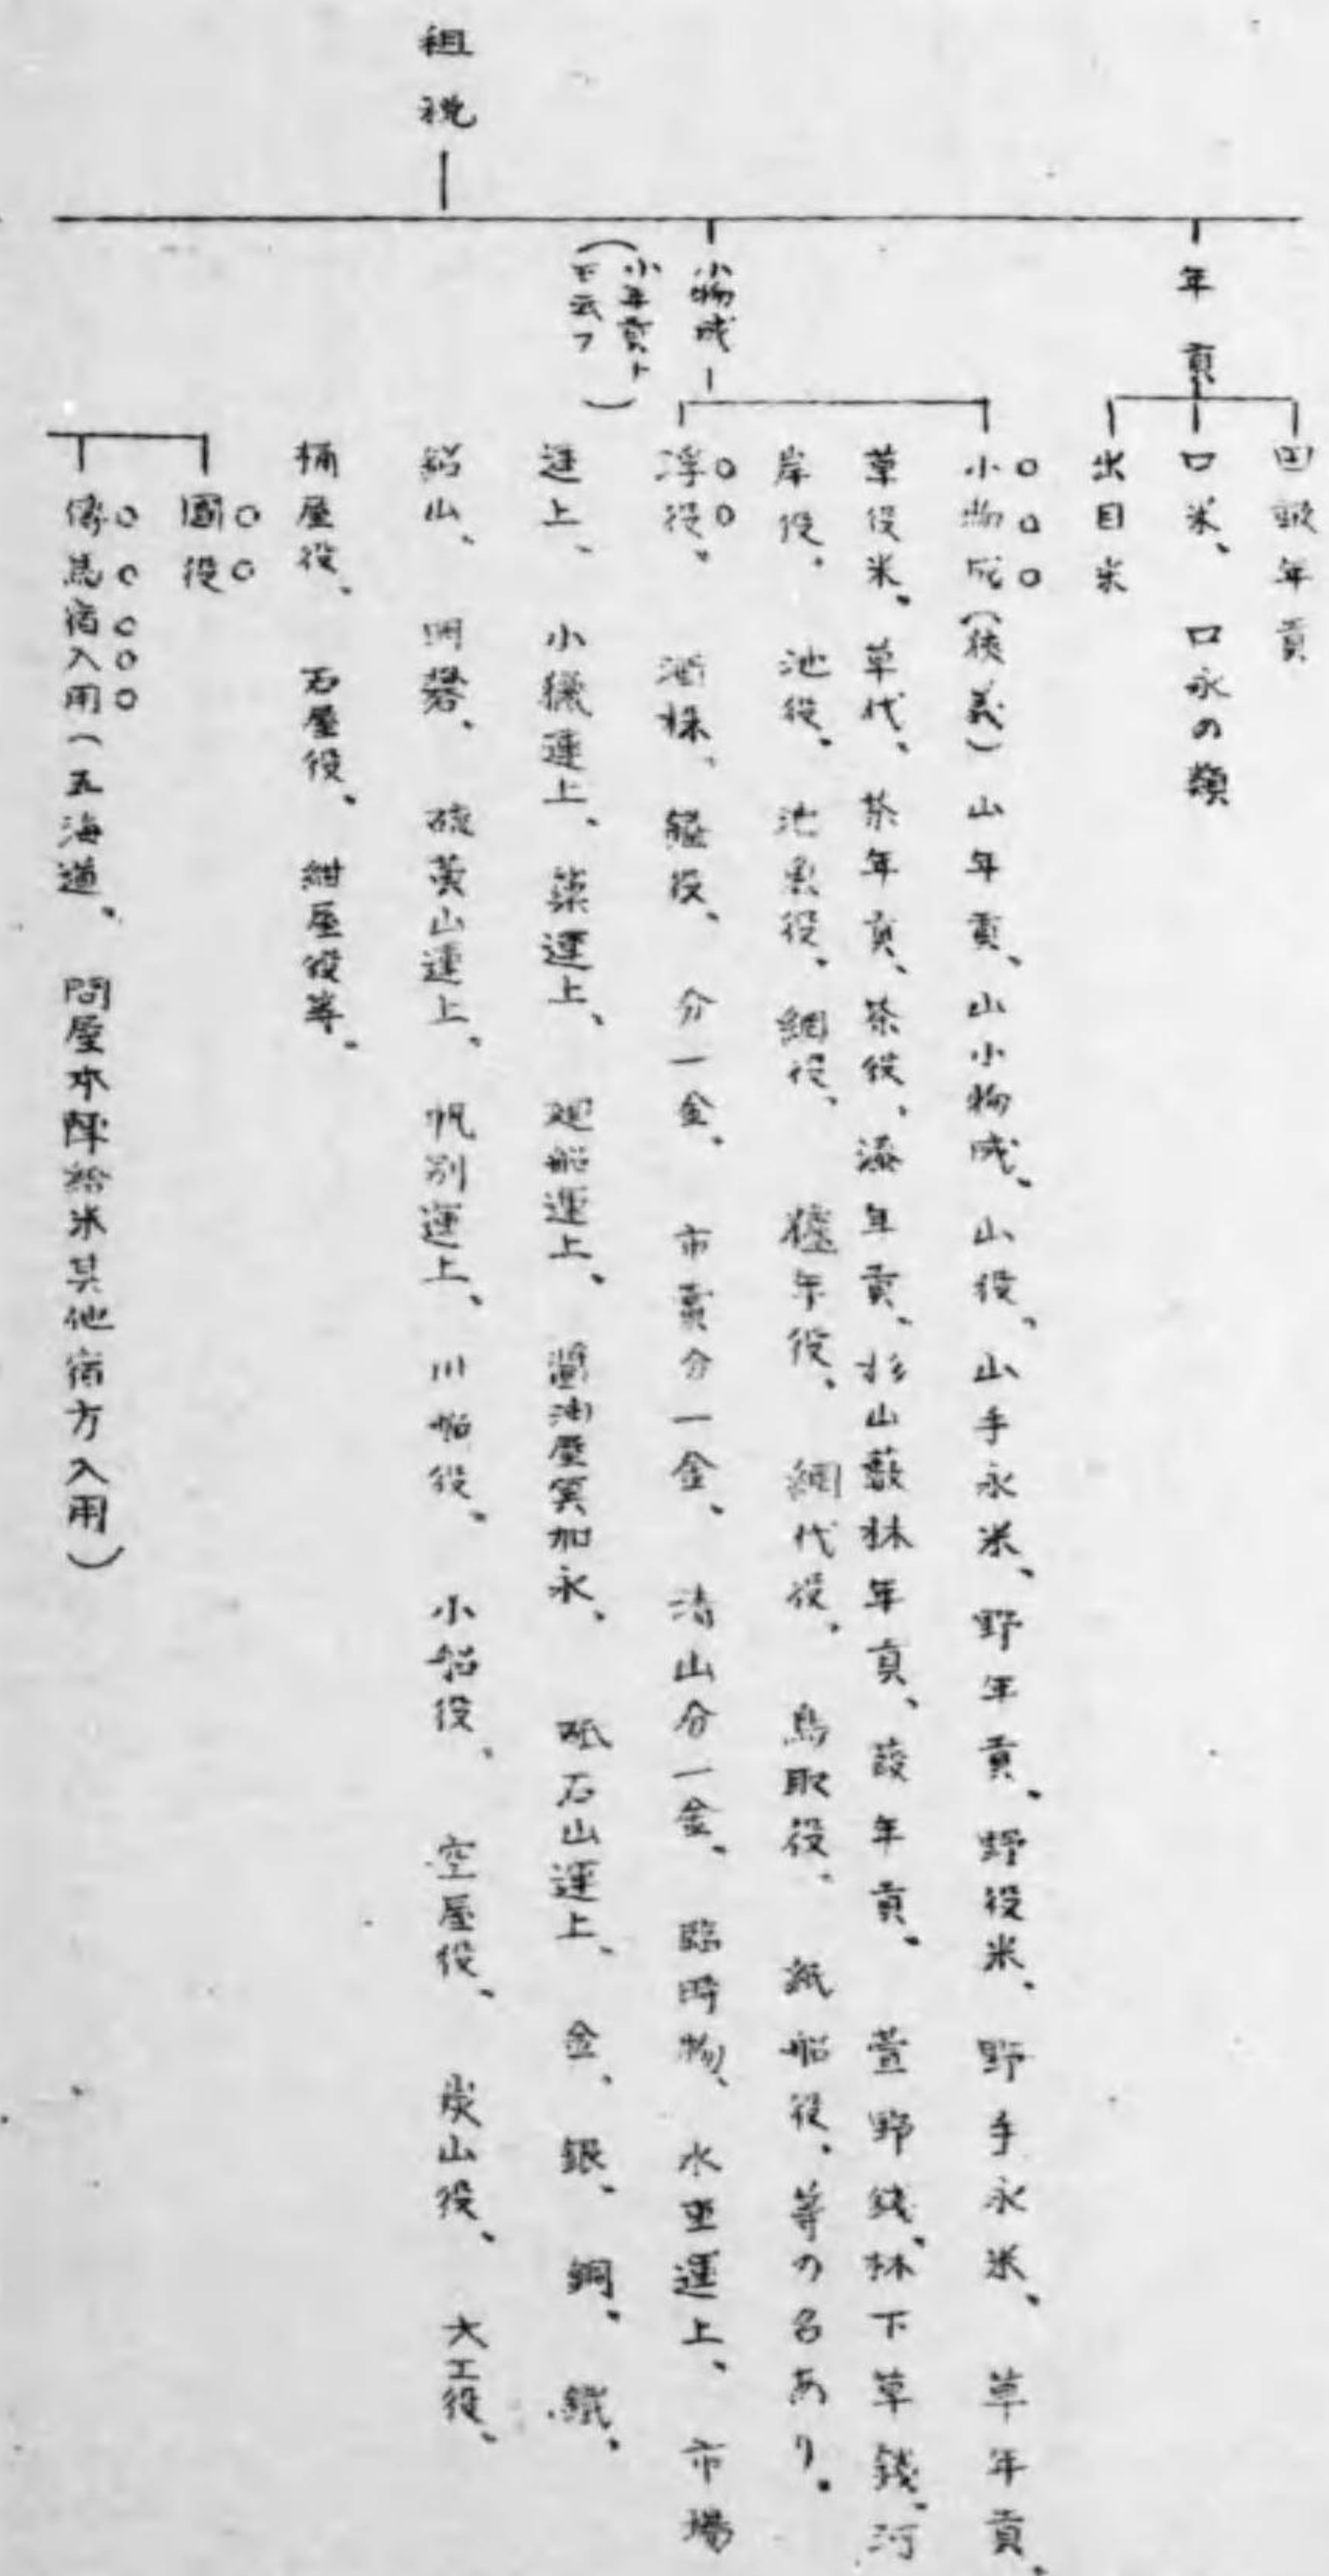 租税
年貢
田畑年貢
口米、口永の類
出目米
小物成
(小年貢トモ云フ)
小物成(狭義)山年貢、山小物成、山役、山手永米、野年貢、野役米、野手永米、草年貢、
草役米、草代、茶年貢、茶役、漆年貢、杉山藪林年貢、葭年貢、萱野銭、林下草銭、河
岸役、池役、池魚役、網役、鱃年役、網代役、鳥取役、紙船役、等の名あり。
浮役、酒株、鎚役、分一金、市売分一金、漬山分一金、臨時物、水車運上、市場
運上、小猟運上、簗運上、廻船運上、醤油屋冥加永、砥石山運上、金、銀、銅、鐵、
鉛山、明礬、硫黄山運上、帆別運上、川船役、小船役、空屋役、炭山役、大工役、
桶屋役、石屋役、紺屋役等、
國役
傳馬宿入用(五海道、問屋本陣給米其他宿方入用)